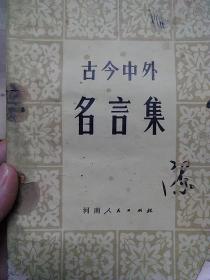 古今中外
名言集
河南人民出版社